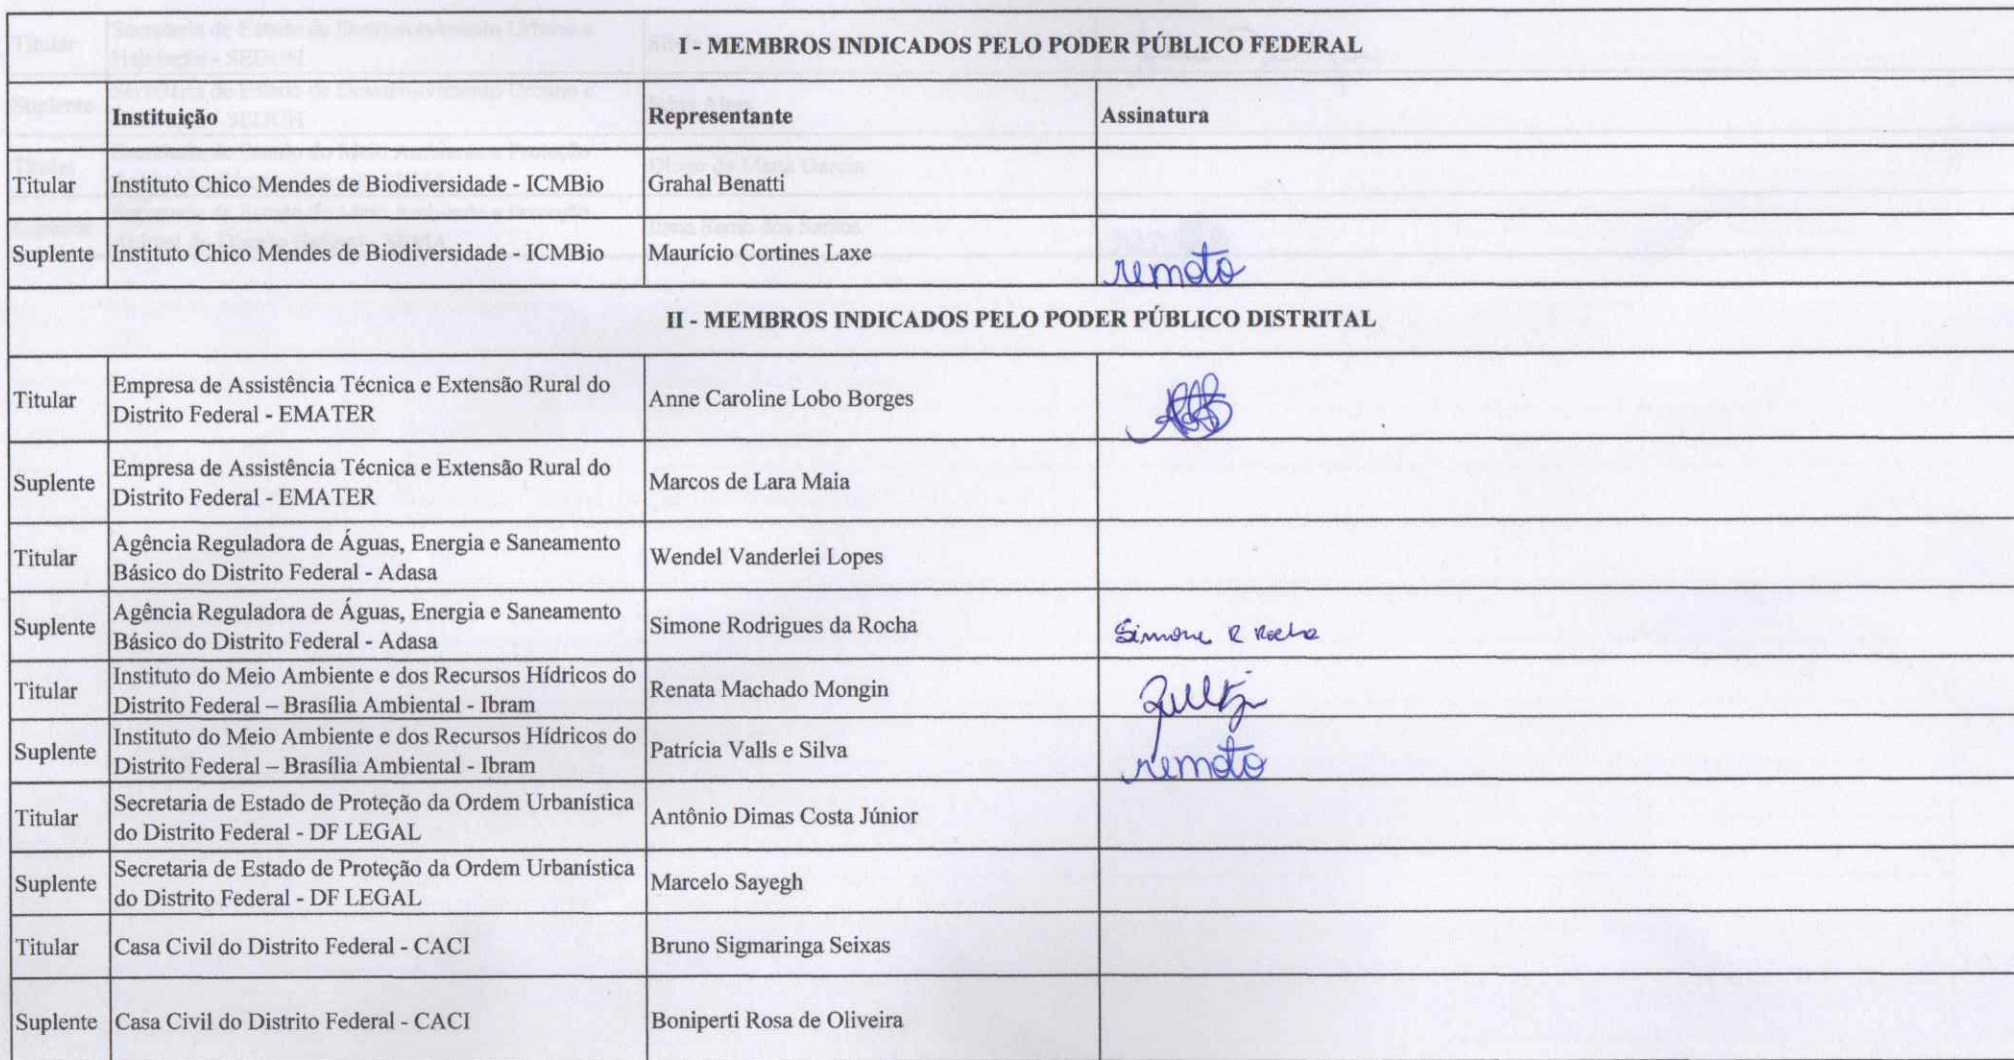 I - MEMBROS INDICADOS PELO PODER PÚBLICO FEDERAL
Instituição Representante Assinatura
Titular Instituto Chico Mendes de Biodiversidade - ICMBio Grahal Benatti
Suplente Instituto Chico Mendes de Biodiversidade - ICMBio Maurício Cortines Laxe remoto
II - MEMBROS INDICADOS PELO PODER PÚBLICO DISTRITAL
Titular Empresa de Assistência Técnica e Extensão Rural do
Distrito Federal - EMATER Anne Caroline Lobo Borges
Suplente Empresa de Assistência Técnica e Extensão Rural do
Distrito Federal - EMATER Marcos de Lara Maia
Titular Agência Reguladora de Águas, Energia e Saneamento
Básico do Distrito Federal - Adasa Wendel Vanderlei Lopes
Suplente Agência Reguladora de Águas, Energia e Saneamento
Básico do Distrito Federal - Adasa Simone Rodrigues da Rocha Simone R Rocha
Titular Instituto do Meio Ambiente e dos Recursos Hídricos do
Distrito Federal – Brasília Ambiental - Ibram Renata Machado Mongin
Suplente Instituto do Meio Ambiente e dos Recursos Hídricos do
Distrito Federal – Brasília Ambiental - Ibram Patrícia Valls e Silva remoto
Titular Secretaria de Estado de Proteção da Ordem Urbanística
do Distrito Federal - DF LEGAL Antônio Dimas Costa Júnior
Suplente Secretaria de Estado de Proteção da Ordem Urbanística
do Distrito Federal - DF LEGAL Marcelo Sayegh
Titular Casa Civil do Distrito Federal - CACI Bruno Sigmaringa Seixas
Suplente Casa Civil do Distrito Federal - CACI Boniperti Rosa de Oliveira